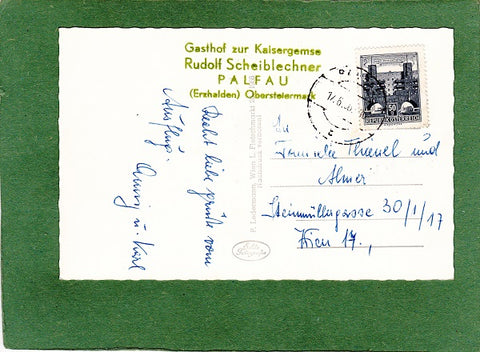 Gasthof zur Kaisergemse
Rudolf Scheiblechner
PALFAU
(Erzhalden) Obersteiermark
REPUBLIK ÖSTERREICH
Recht liebe Grüße vom
Ausflug.
u. Karl
P. Ledermann, Wien I,
An
Familie und
Steinmüllergasse 30/1/17
Wien 17.,
Echte